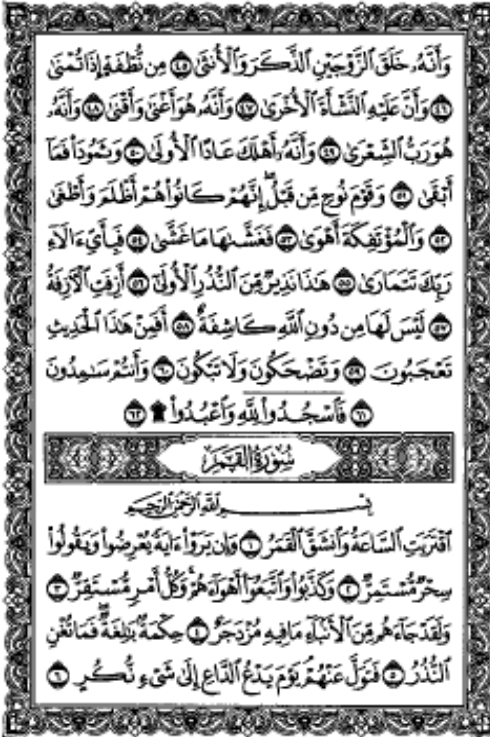 وَأَنَّهُۥ خَلَقَ ٱلزَّوْجَيْنِ ٱلذَّكَرَ وَٱلْأُنثَىٰ ٤٥ مِن نُّطْفَةٍ إِذَا تُمْنَىٰ
٤٦ وَأَنَّ عَلَيْهِ ٱلنَّشْأَةَ ٱلْأُخْرَىٰ ٤٧ وَأَنَّهُۥ هُوَ أَغْنَىٰ وَأَقْنَىٰ ٤٨ وَأَنَّهُۥ
هُوَ رَبُّ ٱلشِّعْرَىٰ ٤٩ وَأَنَّهُۥٓ أَهْلَكَ عَادًا ٱلْأُولَىٰ ٥٠ وَثَمُودَا۟ فَمَآ
أَبْقَىٰ ٥١ وَقَوْمَ نُوحٍ مِّن قَبْلُ ۖ إِنَّهُمْ كَانُوا۟ هُمْ أَظْلَمَ وَأَطْغَىٰ
٥٢ وَٱلْمُؤْتَفِكَةَ أَهْوَىٰ ٥٣ فَغَشَّىٰهَا مَا غَشَّىٰ ٥٤ فَبِأَىِّ ءَالَآءِ
رَبِّكَ تَتَمَارَىٰ ٥٥ هَٰذَا نَذِيرٌ مِّنَ ٱلنُّذُرِ ٱلْأُولَىٰٓ ٥٦ أَزِفَتِ ٱلْءَازِفَةُ
٥٧ لَيْسَ لَهَا مِن دُونِ ٱللَّهِ كَاشِفَةٌ ٥٨ أَفَمِنْ هَٰذَا ٱلْحَدِيثِ
تَعْجَبُونَ ٥٩ وَتَضْحَكُونَ وَلَا تَبْكُونَ ٦٠ وَأَنتُمْ سَٰمِدُونَ
٦١ فَٱسْجُدُوا۟ لِلَّهِ وَٱعْبُدُوا۟ ۩ ٦٢
سُورَةُ القَمَرِ
بِسْمِ ٱللَّهِ ٱلرَّحْمَٰنِ ٱلرَّحِيمِ
ٱقْتَرَبَتِ ٱلسَّاعَةُ وَٱنشَقَّ ٱلْقَمَرُ ١ وَإِن يَرَوْا۟ ءَايَةً يُعْرِضُوا۟ وَيَقُولُوا۟
سِحْرٌ مُّسْتَمِرٌّ ٢ وَكَذَّبُوا۟ وَٱتَّبَعُوٓا۟ أَهْوَآءَهُمْ ۚ وَكُلُّ أَمْرٍ مُّسْتَقِرٌّ ٣
وَلَقَدْ جَآءَهُم مِّنَ ٱلْأَنۢبَآءِ مَا فِيهِ مُزْدَجَرٌ ٤ حِكْمَةٌۢ بَٰلِغَةٌ ۖ فَمَا تُغْنِ
ٱلنُّذُرُ ٥ فَتَوَلَّ عَنْهُمْ ۘ يَوْمَ يَدْعُ ٱلدَّاعِ إِلَىٰ شَىْءٍ نُّكُرٍ ٦